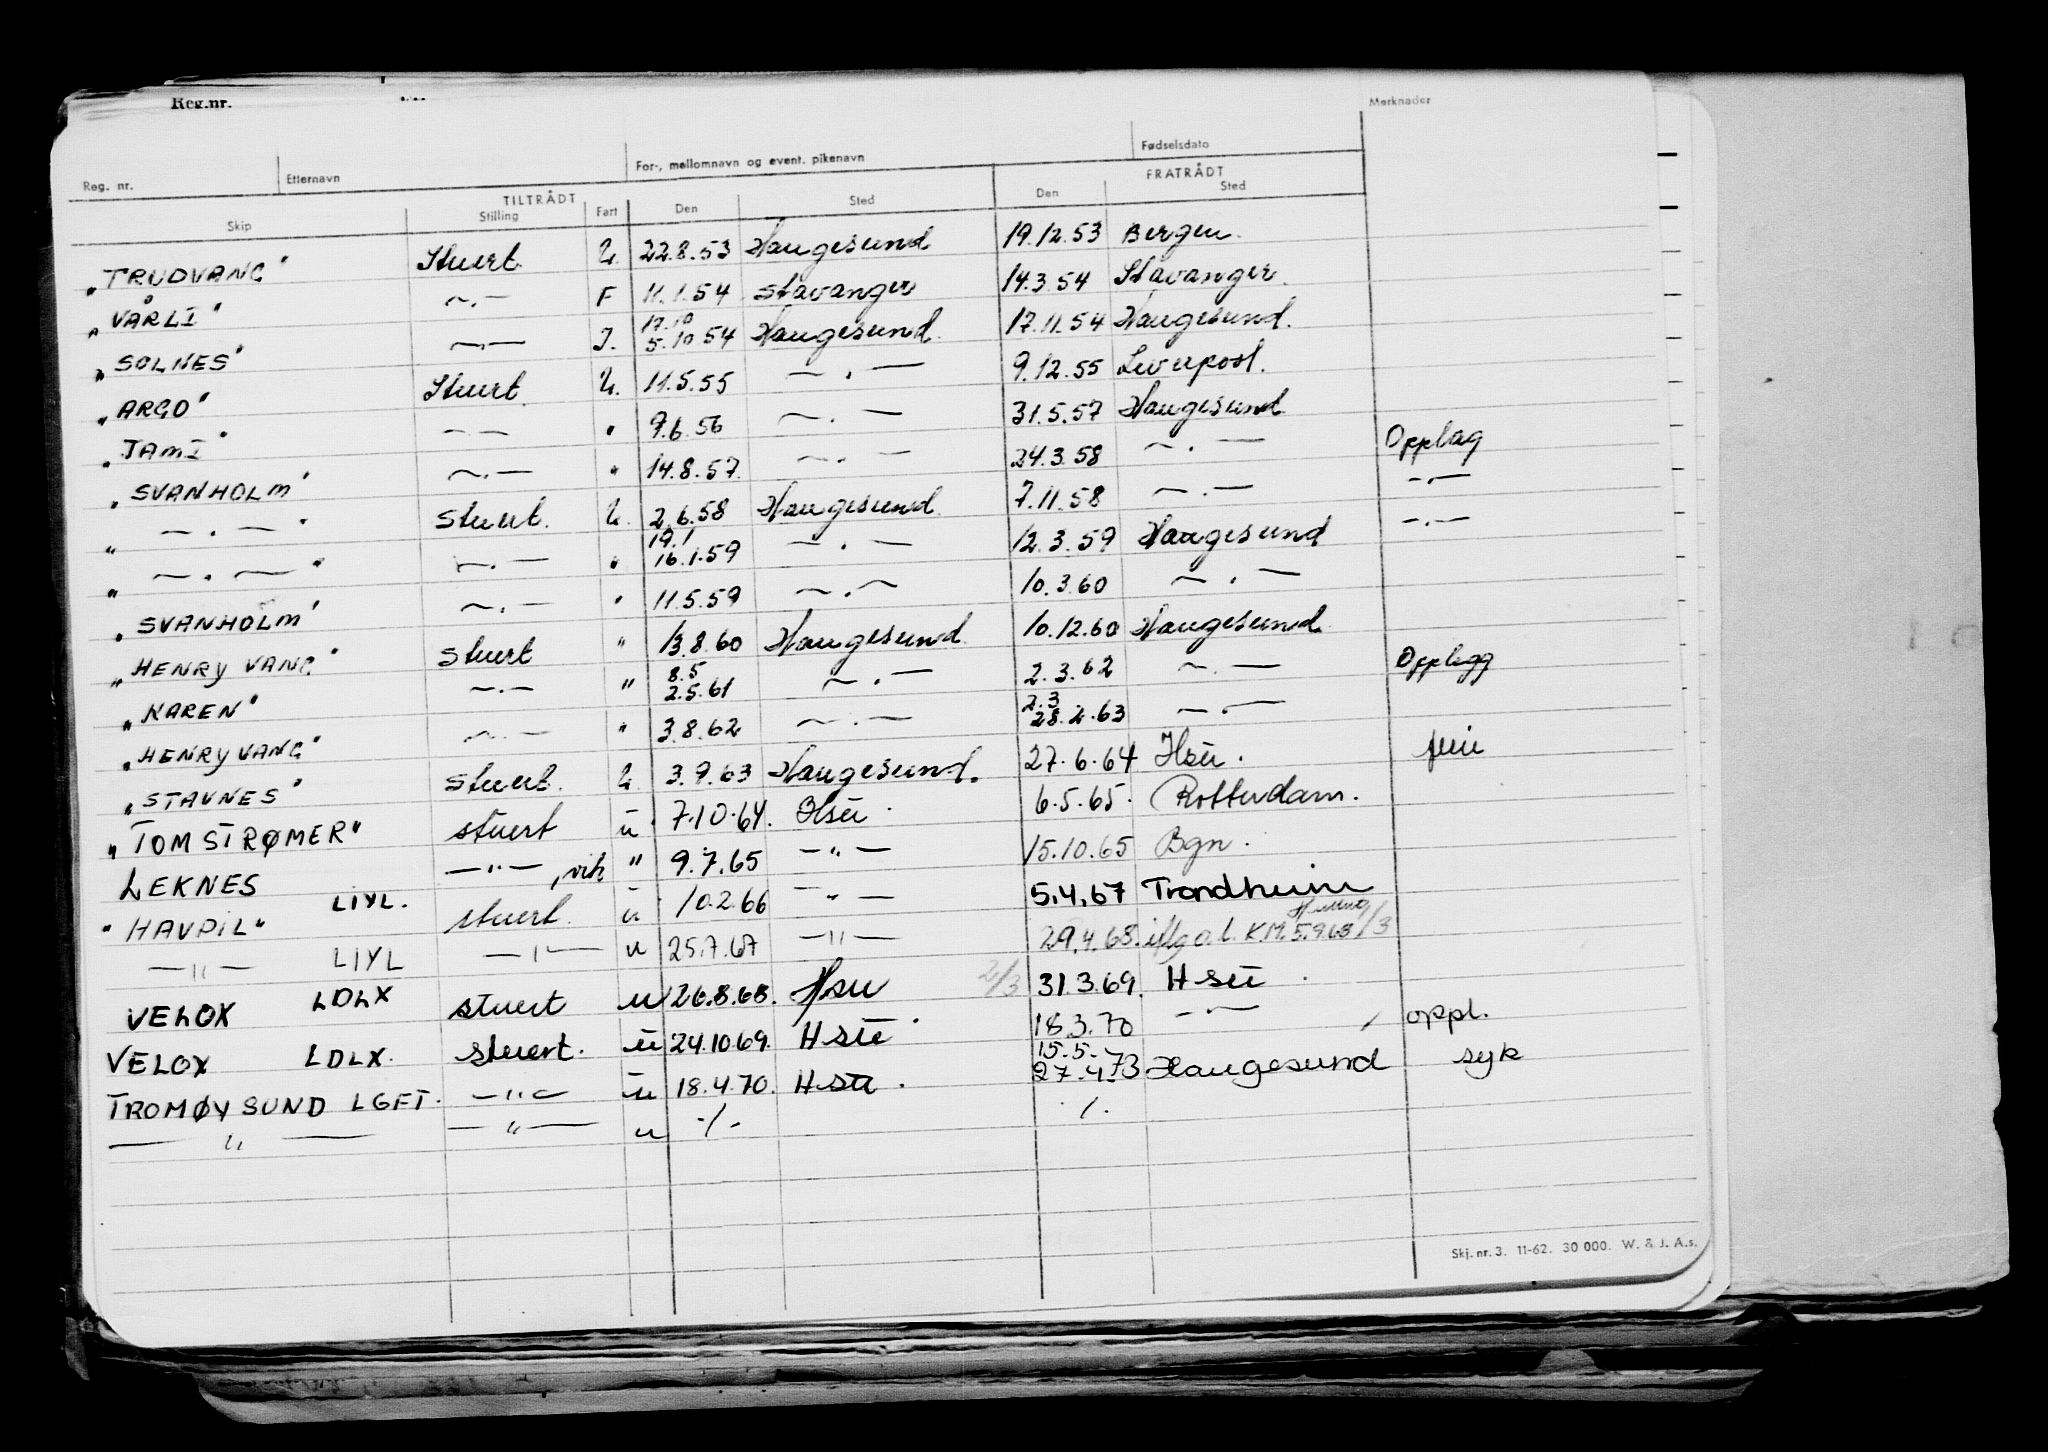 Reg.nr.
Merknader
Reg. nr. Etternavn For-, mellomnavn og event. pikenavn Fødselsdato
TILTRÅDT FRATRÅDT
Skip Stilling Fart Den Sted Den Sted
"TRUDVANG" Stuert U. 22.8.53 Haugesund 19.12.53 Bergen.
"VÅRLI" —.— F 11.1.54 Stavanger 14.3.54 Stavanger.
"SOLNES" —.— I. 17.10 5.10 54 Haugesund. 17.11.54 Haugesund.
"ARGO" Stuert U. 11.5.55 — . — 9.12.55 Liverpool.
"JAMI" —.— " 9.6.56 — . — 31.5.57 Haugesund
"SVANHOLM" —.— " 14.8.57. — . — 24.3.58 — . — Opplag
" — . — " Stuert. U. 2.6.58 Haugesund 7.11.58 — . — —.—
" — . — " —.— " 19.1 16.1.59 — . — 12.3.59 Haugesund —.—
"SVANHOLM" —.— " 11.5.59 — . — 10.3.60 — . —
"HENRY VANG" Stuert " 13.8.60 Haugesund 10.12.60 Haugesund
"KAREN" —.— " 8.5 2.5.61 — . — 2.3.62 — . — Opplegg
"HENRY VANG" —.— " 3.8.62 — . — 2.3 28.2.63 — . —
"STAVNES" Stuert. U 3.9.63 Haugesund. 27.6.64 Hsu. ferie
"TOM STRØMER" stuert u 7.10.64. Hsu. 6.5.65. Rotterdam.
LEKNES —"—, vik " 9.7.65 —"— 15.10.65 Bgn.
"HAVPIL" LIYL. stuert. u 10.2.66 —"— 5.4.67 Trondheim
—"— LIYL —"— u 25.7.67 —"— 29.4.68. iflg o.l. K.M. 5.9.68 /3
VELOX LDLX stuert u 26.8.68. Hsu 2/3 31.3.69. Hsu.
VELOX LDLX. Stuert. u 24.10.69. Hsu 18.3.70 —"— oppl.
TROMØYSUND LGET. —"— u 18.4.70. Hsu. 15.5.- 27.4.73 Haugesund syk
—"— —"— u -/- ./.
Skj. nr. 3. 11-62. 30 000. W. & J. A.s.